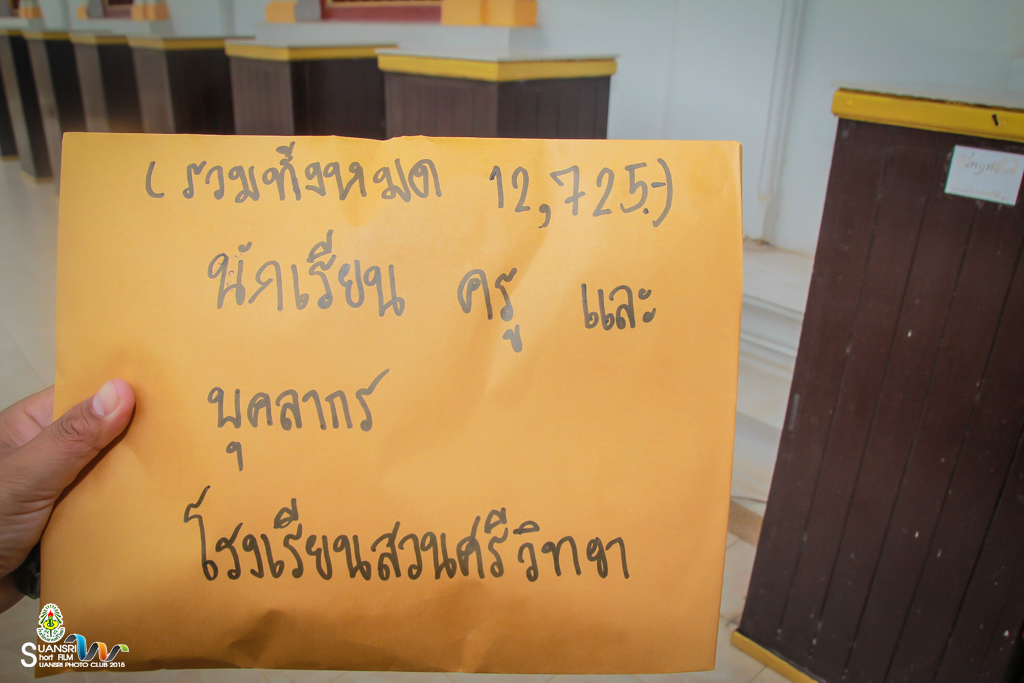 (รวมทั้งหมด 12,725.-)
นักเรียน ครู และ
บุคลากร
โรงเรียนสวนศรีวิทยา
SUANSRI
Short FILM
SUANSRI PHOTO CLUB 2015